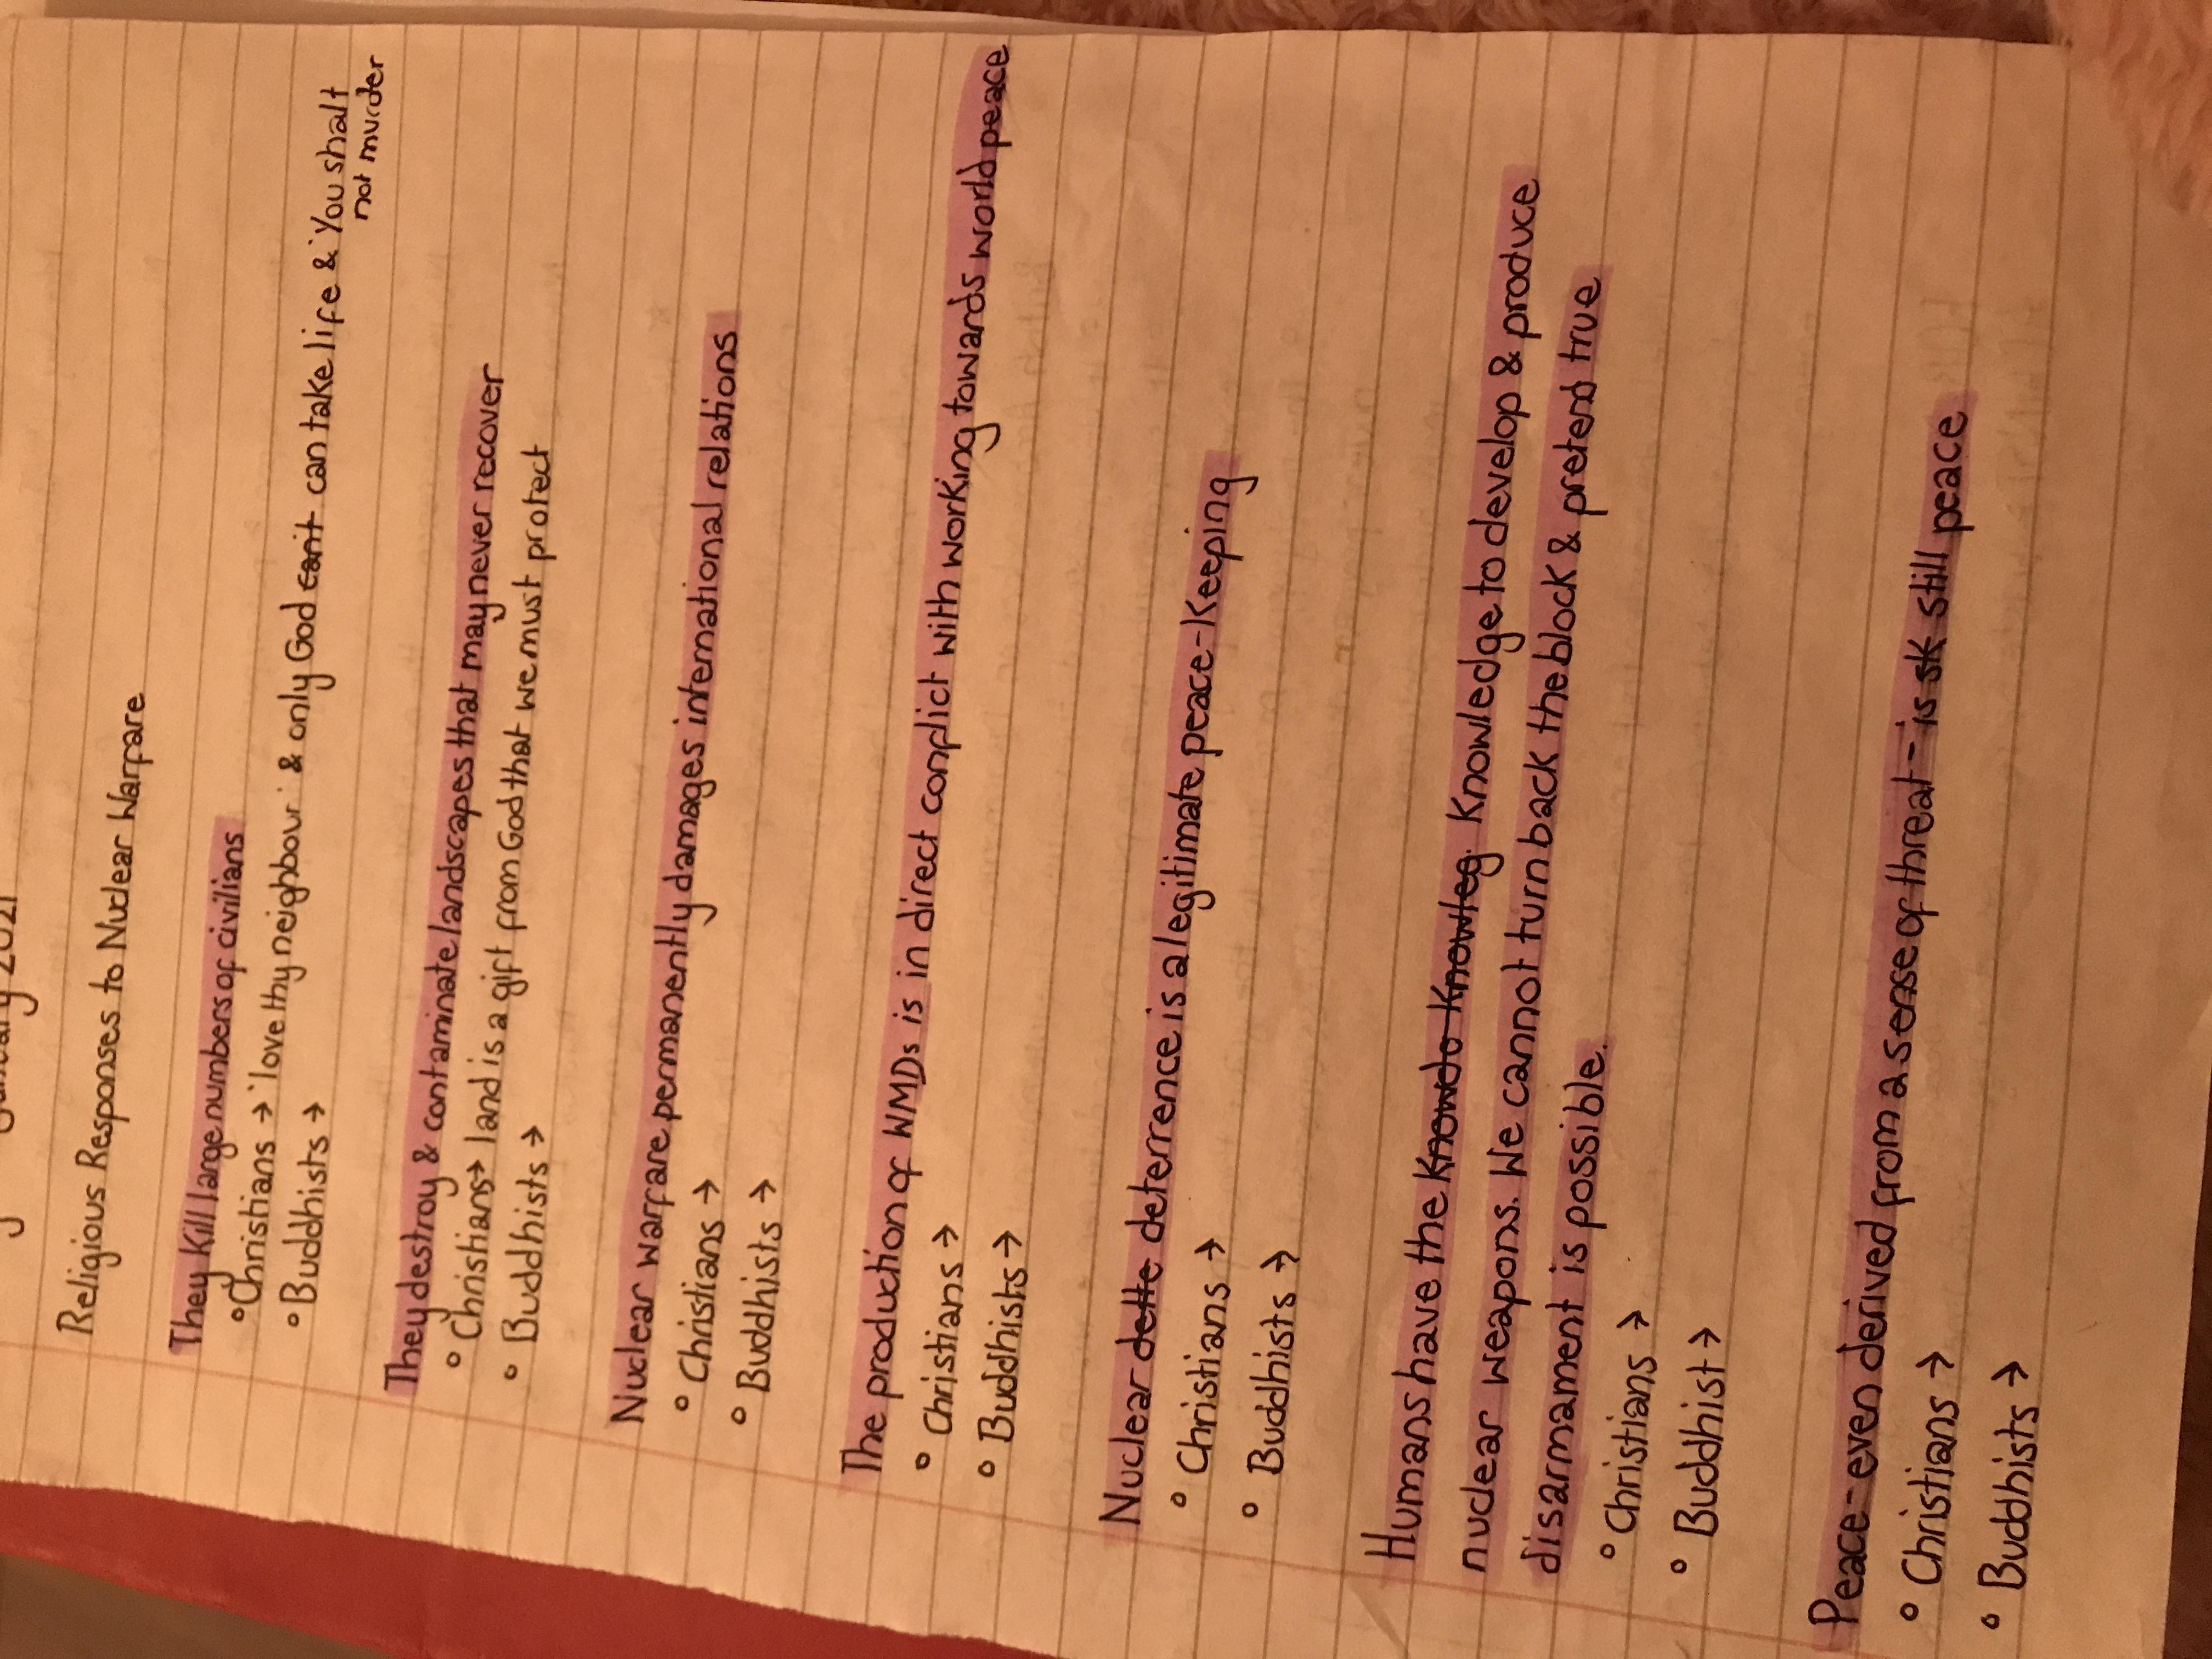 2021
Religious Responses to Nuclear Warfare
They kill large numbers of civilians
• Christians → 'love thy neighbour' & only God can't can take life & 'You shalt
not murder
• Buddhists →
They destroy & contaminate landscapes that may never recover
• Christians → land is a gift from God that we must protect
• Buddhists →
Nuclear warfare permanently damages international relations
• Christians →
• Buddhists →
The production of WMDs is in direct conflict with working towards world peace
• Christians →
• Buddhists →
Nuclear dette deterrence is a legitimate peace-keeping
• Christians →
• Buddhists →
Humans have the knowdo knowleg. knowledge to develop & produce
nuclear weapons. We cannot turn back the block & pretend true
disarmament is possible.
• Christians →
• Buddhist →
Peace - even derived from a sense of threat - is sk still peace
• Christians →
• Buddhists →